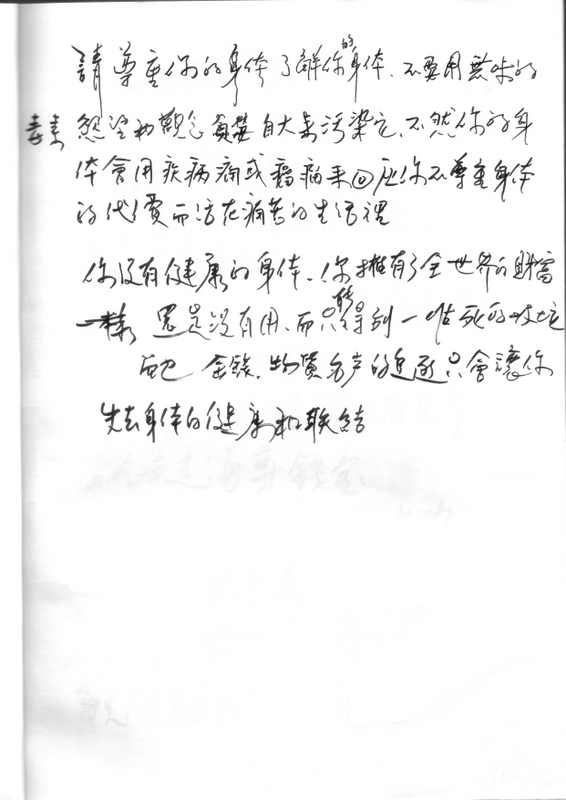 請尊重你的身体了解你的身体、不要用無味的
慾望和觀念貪婪自大來污染它、不然你的身
体會用疾病痛或癌病來回应你不尊重身体
的代價而活在痛苦的生活裡
你沒有健康的身体、你擁有了全世界的財富
一樣 還是沒有用、而只能得到一堆死的
而已 金錢、物質名產的追逐只會讓你
失去身体的健康和联結